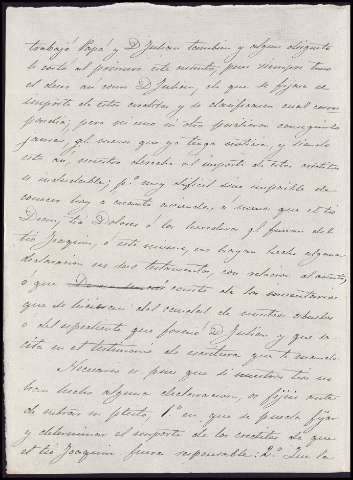 trabajó Papá y D Julian tambien y algun disgusto
le costó al primero este asunto, pues siempre tuvo
el deseo así como D Julian, de que se fijara el
importe de estos creditos y se clasificaran cual corres
pondia; pero ni uno ni otro pudieron conseguirlo
jamas, al menos que yo tenga noticia, y siendo
esto así, nuestro derecho al importe de estos creditos
es indudable; pº muy dificil sino imposible de
conocer hoy a cuanto asciende, á menos que el tio
Doming tia Dolores ó los herederos al finar del
tio Joaquin, ó este mismo, no hayan hecho alguna
declaracion en sus testamentos, con relacion al asunto,
ó que conste de los inventarios
que se hicieron del caudal de nuestros abuelos
o del espediente que formó D Julián y que se
cita en el testimonio de escritura que te mandé
Necesario es pues que si nuestros tios no
han hecho alguna declaracion, os fijeis antes
de entrar en pleito, 1º en que se pueda fijar
y determinar el importe de los creditos de que
el tio Joaquin fuera responsable: 2º Que la